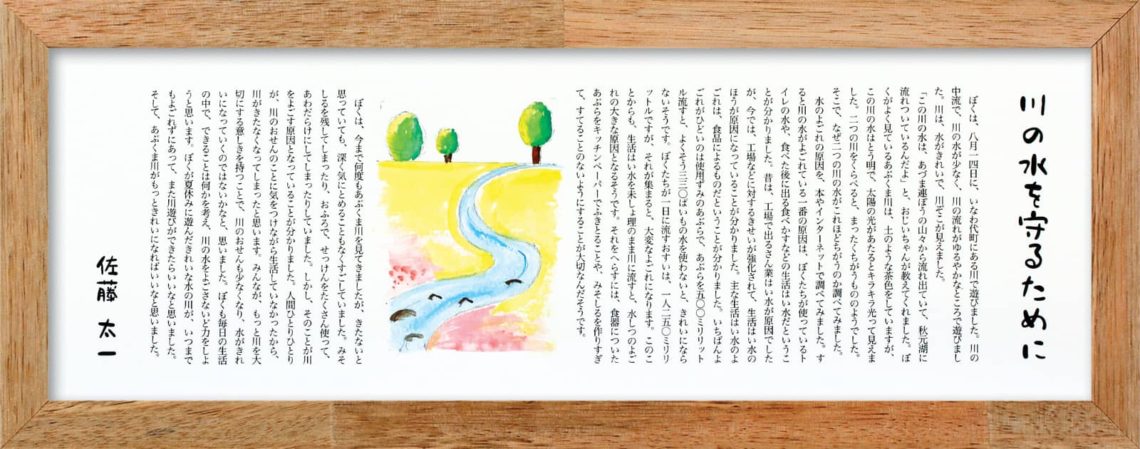 川の水を守るために
ぼくは、八月一四日に、いなわ代町にある川で遊びました。川の
中流で、川の水が少なく、川の流れがゆるやかなところで遊びまし
た。川は、水がきれいで、川ぞこが見えました。
「この川の水は、あづま連ぽうの山々から流れ出ていて、秋元湖に
流れついているんだよ」と、おじいちゃんが教えてくれました。ぼ
くがよく見ているあぶくま川は、土のような茶色をしていますが、
この川の水はとう明で、太陽の光があたるとキラキラ光って見えま
した。二つの川をくらべると、まったくちがうもののようでした。
そこで、なぜ二つの川の水がこれほどちがうのか調べてみました。
水のよごれの原因を、本やインターネットで調べてみました。す
ると川の水がよごれている一番の原因は、ぼくたちが使っているト
イレの水や、食べた後に出る食べかすなどの生活はい水だというこ
とが分かりました。昔は、工場で出るさん業はい水が原因でした
が、今では、工場などに対するきせいが強化されて、生活はい水の
ほうが原因になっていることが分かりました。主な生活はい水のよ
ごれは、食品によるものだということが分かりました。いちばんよ
ごれがひどいのは使用ずみのあぶらで、あぶらを五〇〇ミリリット
ル流すと、よくそう三三〇ぱいもの水を使わないと、きれいになら
ないそうです。ぼくたちが一日に流すおすいは、一人二五〇ミリリ
ットルですが、それが集まると、大変なよごれになります。このこ
とからも、生活はい水を未しょ理のまま川に流すと、水しつのよご
れの大きな原因となるそうです。それをへらすには、食器についた
あぶらをキッチンペーパーでふきとることや、みそしるを作りすぎ
て、すてることのないようにすることが大切なんだそうです。
ぼくは、今まで何度もあぶくま川を見てきましたが、きたないと
思っていても、深く気にとめることもなくすごしていました。みそ
しるを残してしまったり、おふろで、せっけんをたくさん使って、
あわだらけにしてしまったりしていました。しかし、そのことが川
をよごす原因となっていることが分かりました。人間ひとりひとり
が、川のおせんのことに気をつけながら生活していなかったから、
川がきたなくなってしまったと思います。みんなが、もっと川を大
切にする意しきを持つことで、川のおせんも少なくなり、水がきれ
いになっていくのではないかなと、思いました。ぼくも毎日の生活
の中で、できることは何かを考え、川の水をよごさないど力をしよ
うと思います。ぼくが夏休みに遊んだきれいな水の川が、いつまで
もよごれずにあって、また川遊びができたらいいなと思いました。
そして、あぶくま川がもっときれいになればいいなと思いました。
佐藤 太一